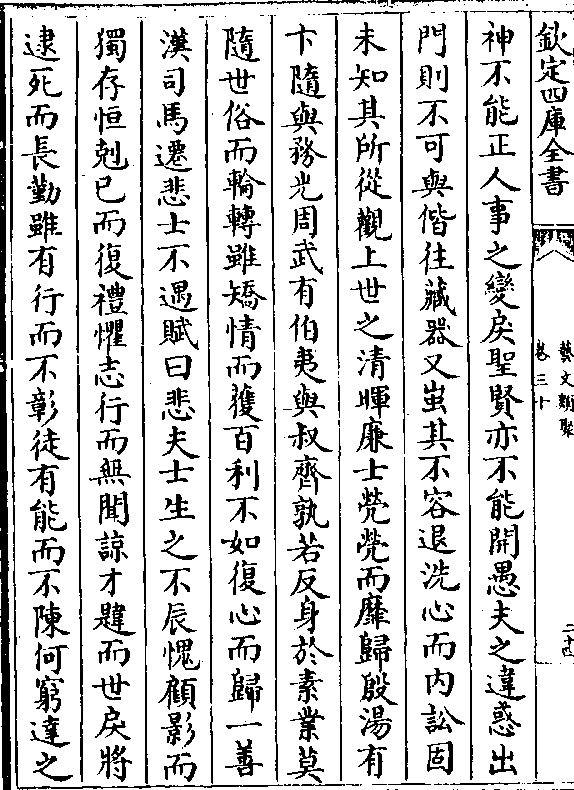 欽定四庫全書
藝文類聚
卷三十
二十四
神不能正人事之變戾聖賢亦不能開愚夫之違惑出
門則不可與偕往藏器又蚩其不容退洗心而内訟固
未知其所從觀上世之清暉廉士煢煢而靡歸殷湯有
卞隨與務光周武有伯夷與叔齊孰若反身於素業莫
隨世俗而輪轉雖矯情而獲百利不如復心而歸一善
漢司馬遷悲士不遇賦曰悲夫士生之不辰愧顧影而
獨存恒剋已而復禮懼志行而無聞諒才韙而世戾將
逮死而長勤雖有行而不彰徒有能而不陳何窮達之